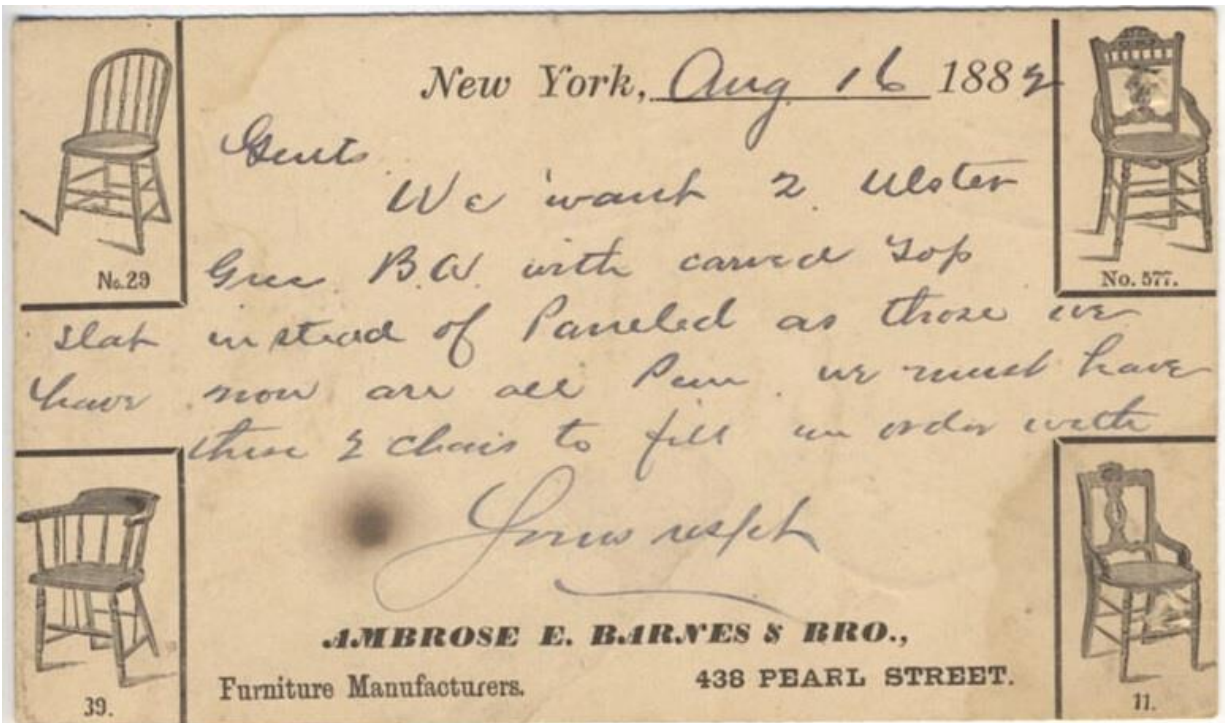 New York, Aug 16 1882
Gents
We want 2 Ulster
B.W. with carved Top
No.29
No. 577.
slat instead of Paneled as those we
have now are all we must have
these 2 chairs to fill an order with
Yours respt
AMBROSE E. BARNES & BRO.,
Furniture Manufacturers.
438 PEARL STREET.
39.
11.